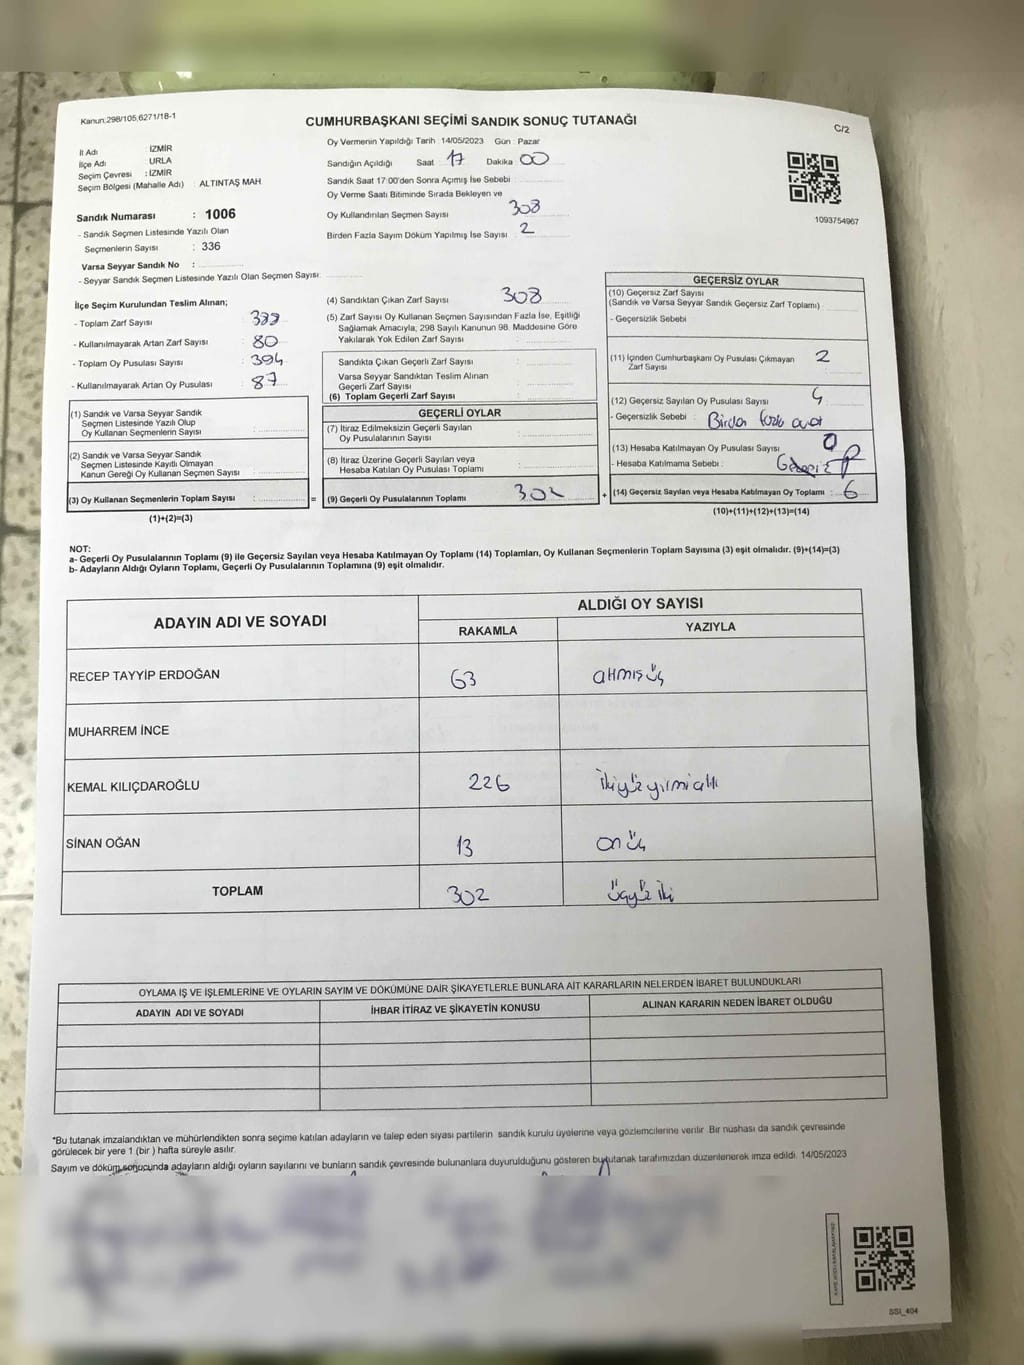 Kanun:298/105,6271/18-1
CUMHURBAŞKANI SEÇİMİ SANDIK SONUÇ TUTANAĞI
C/2
İl Adı : İZMİR
İlçe Adı : URLA
Seçim Çevresi : İZMİR
Seçim Bölgesi (Mahalle Adı) : ALTINTAŞ MAH.
Sandık Numarası : 1006
- Sandık Seçmen Listesinde Yazılı Olan
Seçmenlerin Sayısı : 336
Varsa Seyyar Sandık No :
- Seyyar Sandık Seçmen Listesinde Yazılı Olan Seçmen Sayısı:
Oy Vermenin Yapıldığı Tarih :14/05/2023 Gün : Pazar
Sandığın Açıldığı Saat : 17 Dakika : 00
Sandık Saat 17:00'den Sonra Açımış İse Sebebi :
Oy Verme Saati Bitiminde Sırada Bekleyen ve
Oy Kullandırılan Seçmen Sayısı : 308
Birden Fazla Sayım Döküm Yapılmış İse Sayısı : 2
1093754967
İlçe Seçim Kurulundan Teslim Alınan;
- Toplam Zarf Sayısı :
- Kullanılmayarak Artan Zarf Sayısı : 80
- Toplam Oy Pusulası Sayısı : 394
- Kullanılmayarak Artan Oy Pusulası : 87
(1) Sandık ve Varsa Seyyar Sandık
Seçmen Listesinde Yazılı Olup
Oy Kullanan Seçmenlerin Sayısı :
(2) Sandık ve Varsa Seyyar Sandık
Seçmen Listesinde Kayıtlı Olmayan
Kanun Gereği Oy Kullanan Seçmen Sayısı :
(3) Oy Kullanan Seçmenlerin Toplam Sayısı : =
(1)+(2)=(3)
(4) Sandıktan Çıkan Zarf Sayısı : 308
(5) Zarf Sayısı Oy Kullanan Seçmen Sayısından Fazla İse, Eşitliği
Sağlamak Amacıyla; 298 Sayılı Kanunun 98. Maddesine Göre
Yakılarak Yok Edilen Zarf Sayısı :
Sandıkta Çıkan Geçerli Zarf Sayısı :
Varsa Seyyar Sandıktan Teslim Alınan
Geçerli Zarf Sayısı :
(6) Toplam Geçerli Zarf Sayısı :
GEÇERLİ OYLAR
(7) İtiraz Edilmeksizin Geçerli Sayılan
Oy Pusulalarının Sayısı :
(8) İtiraz Üzerine Geçerli Sayılan veya
Hesaba Katılan Oy Pusulası Toplamı :
(9) Geçerli Oy Pusulalarının Toplamı : 302 +
GEÇERSİZ OYLAR
(10) Geçersiz Zarf Sayısı
(Sandık ve Varsa Seyyar Sandık Geçersiz Zarf Toplamı) :
- Geçersizlik Sebebi :
(11) İçinden Cumhurbaşkanı Oy Pusulası Çıkmayan
Zarf Sayısı : 2
(12) Geçersiz Sayılan Oy Pusulası Sayısı : 4
- Geçersizlik Sebebi : Birden fazla
(13) Hesaba Katılmayan Oy Pusulası Sayısı : 0
- Hesaba Katılmama Sebebi :
(14) Geçersiz Sayılan veya Hesaba Katılmayan Oy Toplamı : 6
(10)+(11)+(12)+(13)=(14)
NOT:
a- Geçerli Oy Pusulalarının Toplamı (9) ile Geçersiz Sayılan veya Hesaba Katılmayan Oy Toplamı (14) Toplamları, Oy Kullanan Seçmenlerin Toplam Sayısına (3) eşit olmalıdır. (9)+(14)=(3)
b- Adayların Aldığı Oyların Toplamı, Geçerli Oy Pusulalarının Toplamına (9) eşit olmalıdır.
ADAYIN ADI VE SOYADI
ALDIĞI OY SAYISI
RAKAMLA
YAZIYLA
RECEP TAYYİP ERDOĞAN 63 altmış üç
MUHARREM İNCE
KEMAL KILIÇDAROĞLU 226 ikiyüz yirmi altı
SİNAN OĞAN 13 on üç
TOPLAM 302 üçyüz iki
OYLAMA İŞ VE İŞLEMLERİNE VE OYLARIN SAYIM VE DÖKÜMÜNE DAİR ŞİKAYETLERLE BUNLARA AİT KARARLARIN NELERDEN İBARET BULUNDUKLARI
ADAYIN ADI VE SOYADI
İHBAR İTİRAZ VE ŞİKAYETİN KONUSU
ALINAN KARARIN NEDEN İBARET OLDUĞU
*Bu tutanak imzalandıktan ve mühürlendikten sonra seçime katılan adayların ve talep eden siyasi partilerin sandık kurulu üyelerine veya gözlemcilerine verilir .Bir nüshası da sandık çevresinde
görülecek bir yere 1 (bir ) hafta süreyle asılır.
Sayım ve döküm sonucunda adayların aldığı oyların sayılarını ve bunların sandık çevresinde bulunanlara duyurulduğunu gösteren bu tutanak tarafımızdan düzenlenerek imza edildi. 14/05/2023
SSI_404